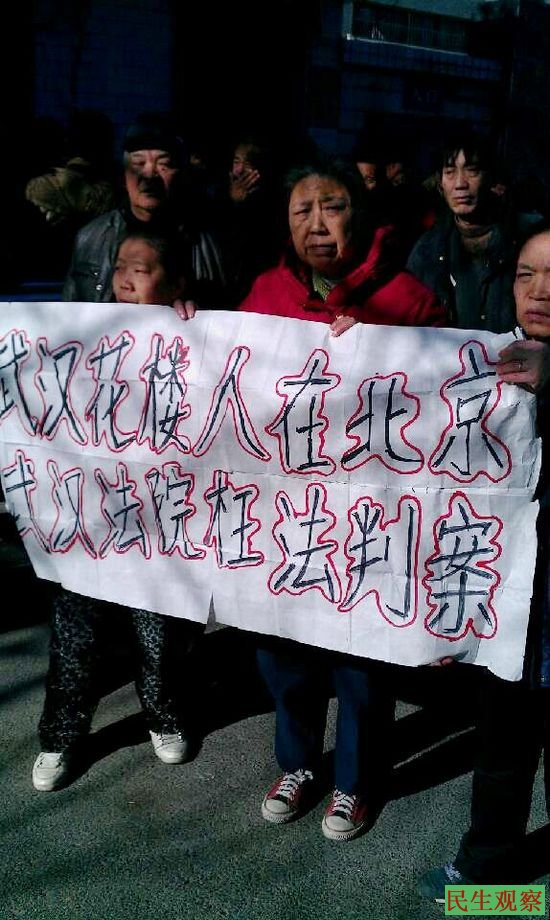 武汉花楼人在北京
武汉法院枉法判案
民生观察